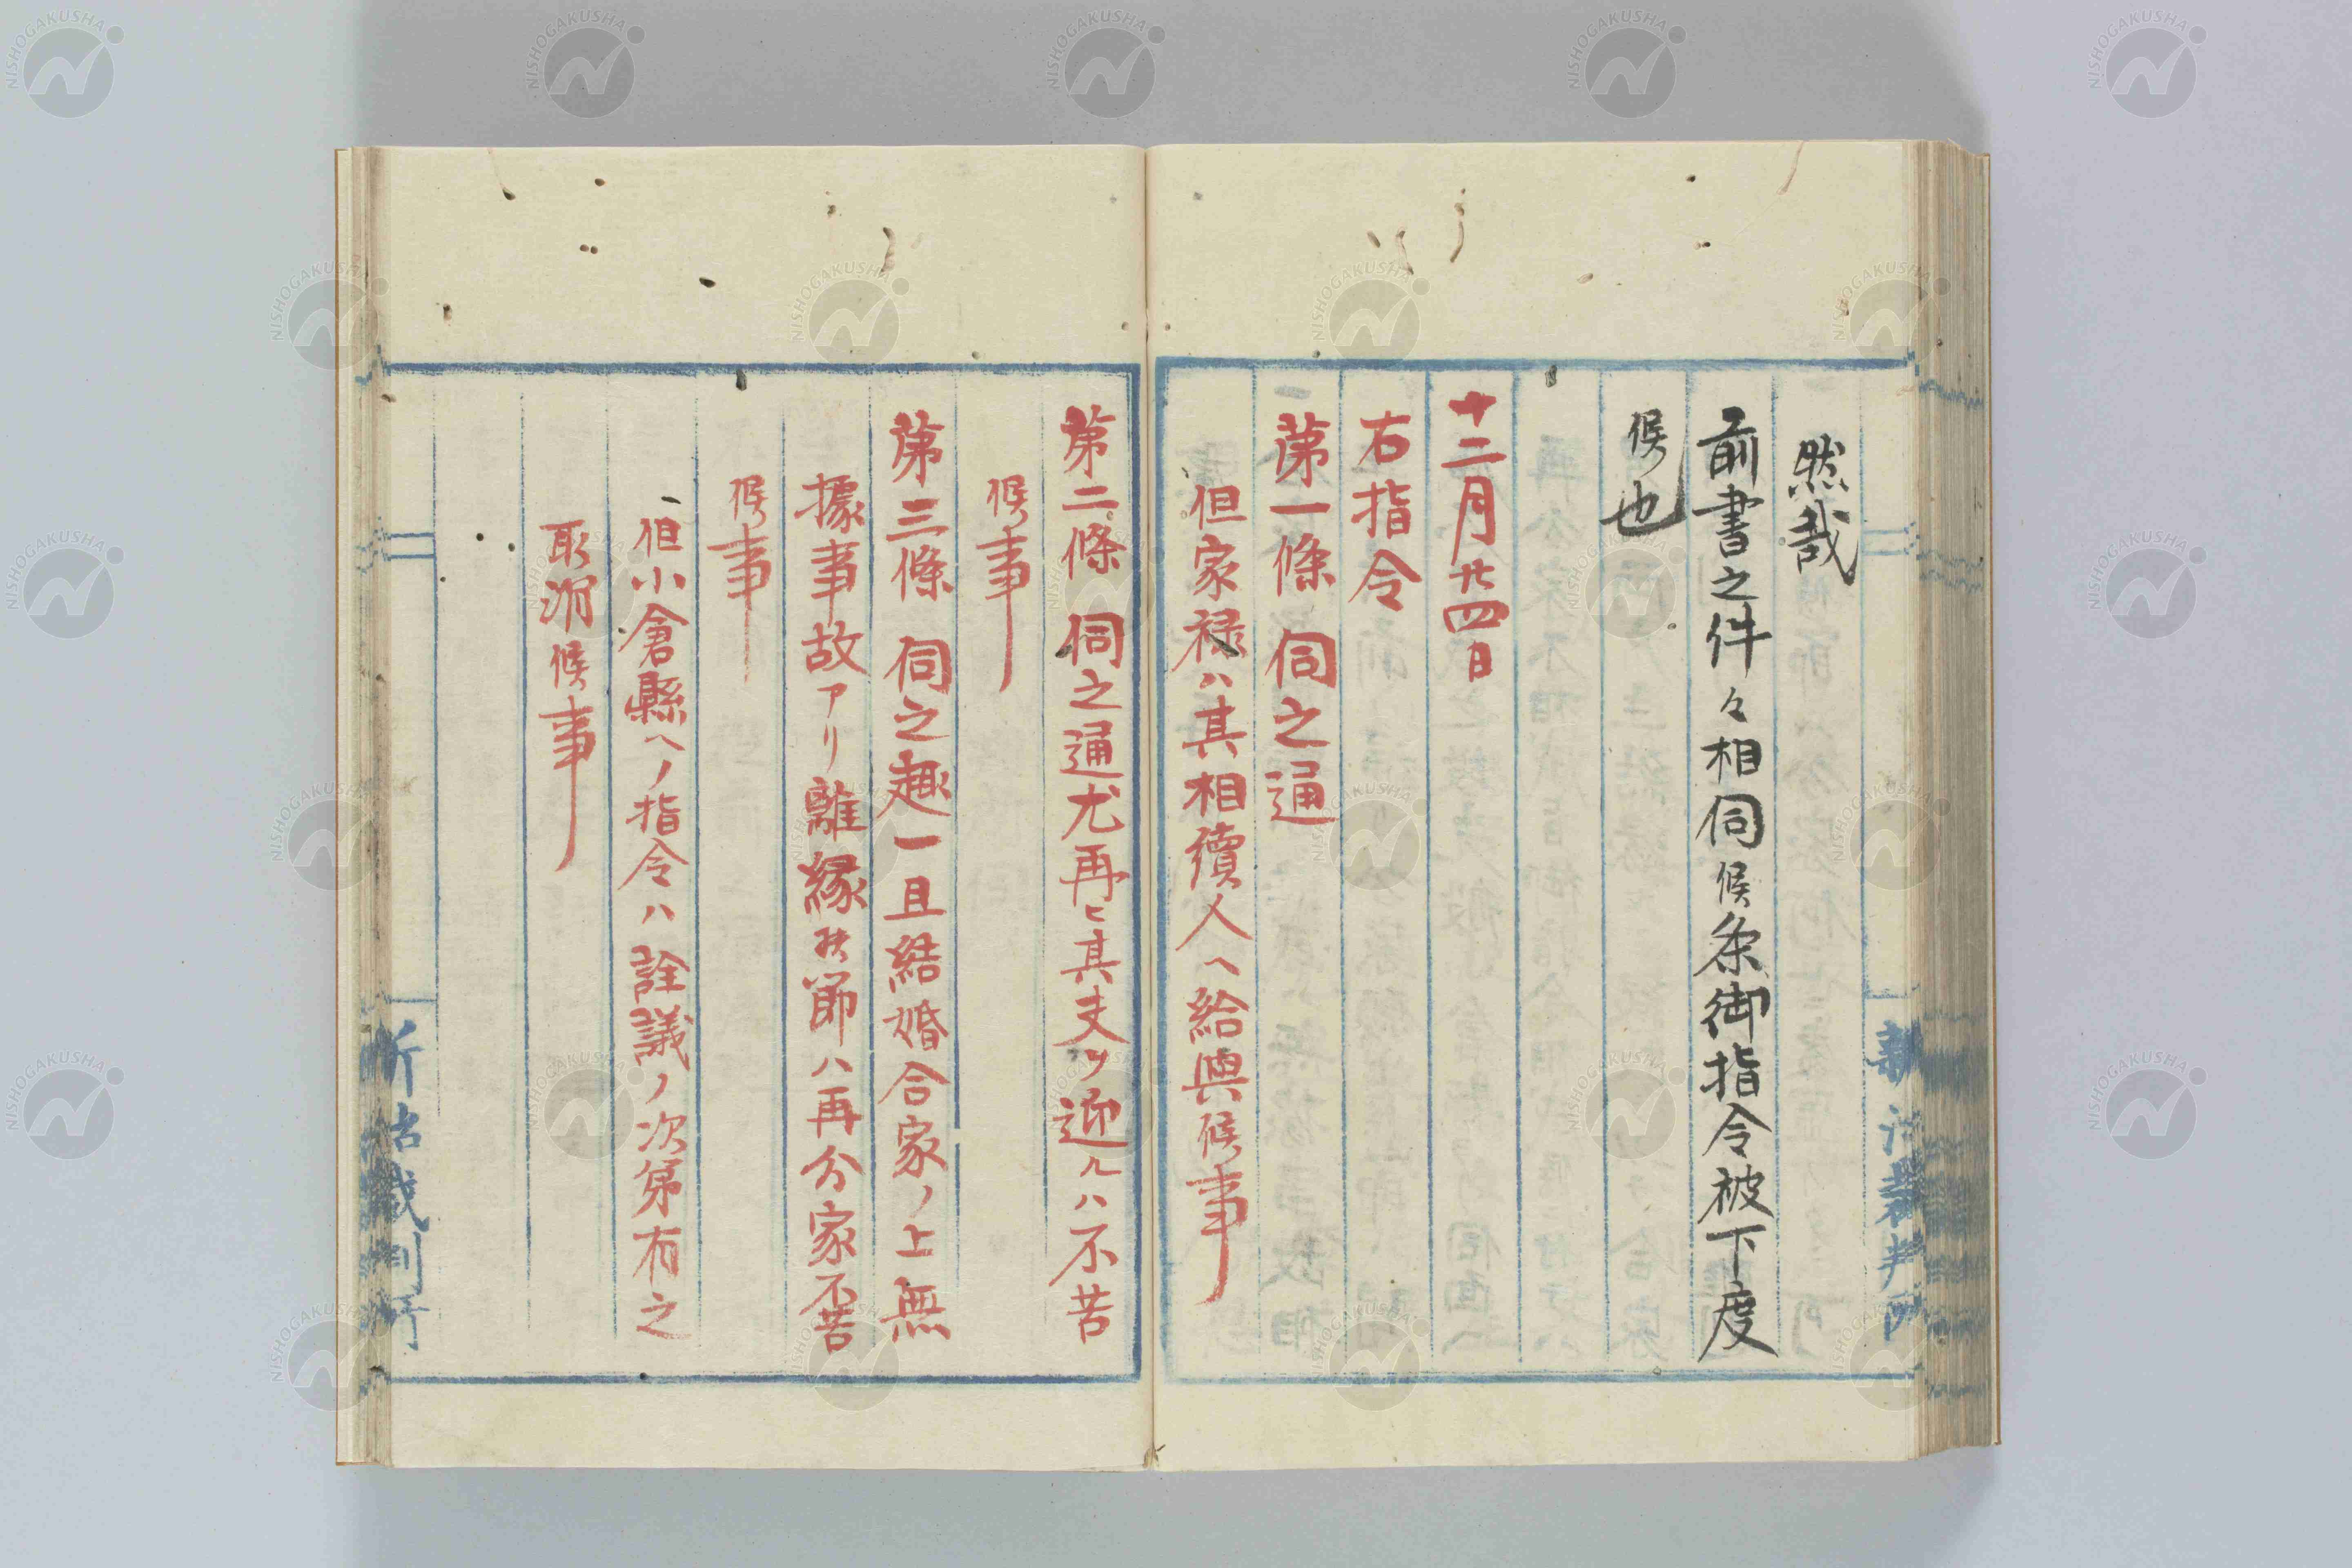 然哉
前書之件々相伺候条御指令被下度
候也
十二月廿四日
右指令
第一條 伺之通
但家禄ハ其相續人ヘ給與候事
第二條 伺之通尤再ヒ其夫ヲ迎ルハ不苦
候事
第三條 伺之趣一旦結婚合家ノ上無
據事故アリ離縁ノ節ハ再分家不苦
候事
但小倉縣ヘノ指令ハ詮議ノ次第有之
取消候事
新治裁判所
新治裁判所
NISHOGAKUSHA